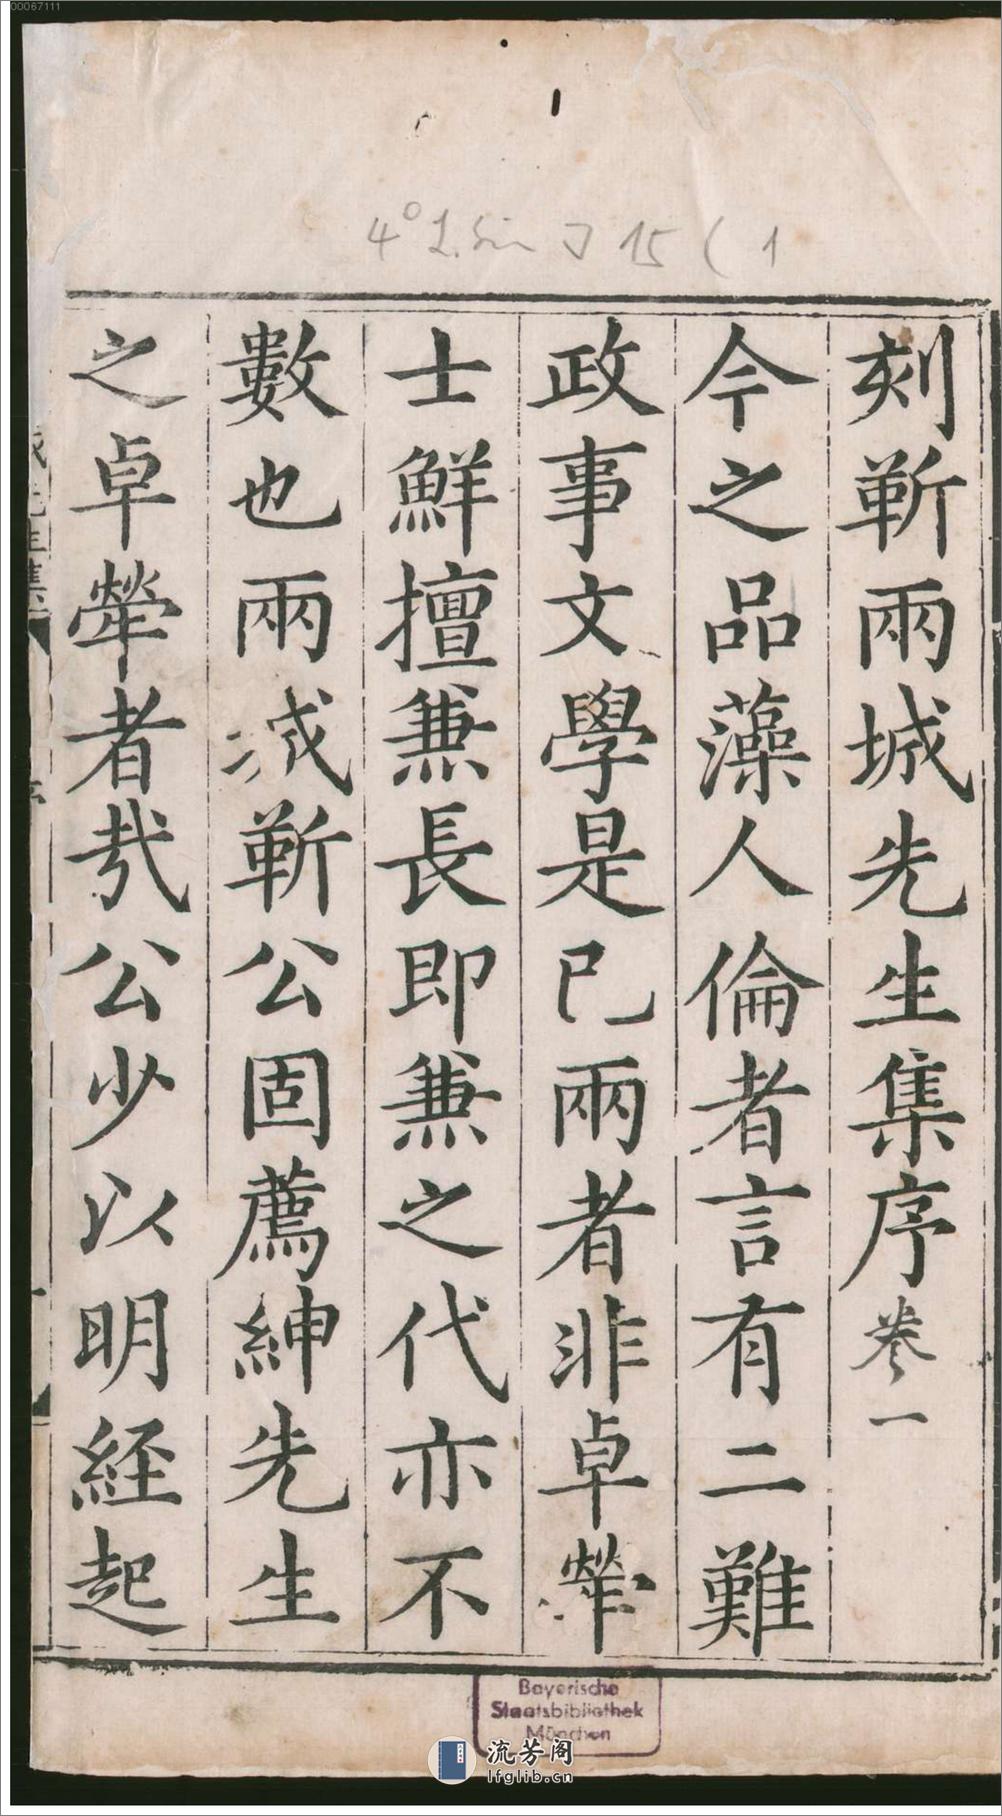 00067111
4° L. sin J 15 (1
刻靳兩城先生集序卷一
今之品藻人倫者言有二難
政事文學是已兩者非卓犖
士鮮擅兼長即兼之代亦不
數也兩城靳公固薦紳先生
之卓犖者㢤公少以明経起
Bayerische
Staatsbibliothek
München
流芳阁
lfglib.cn